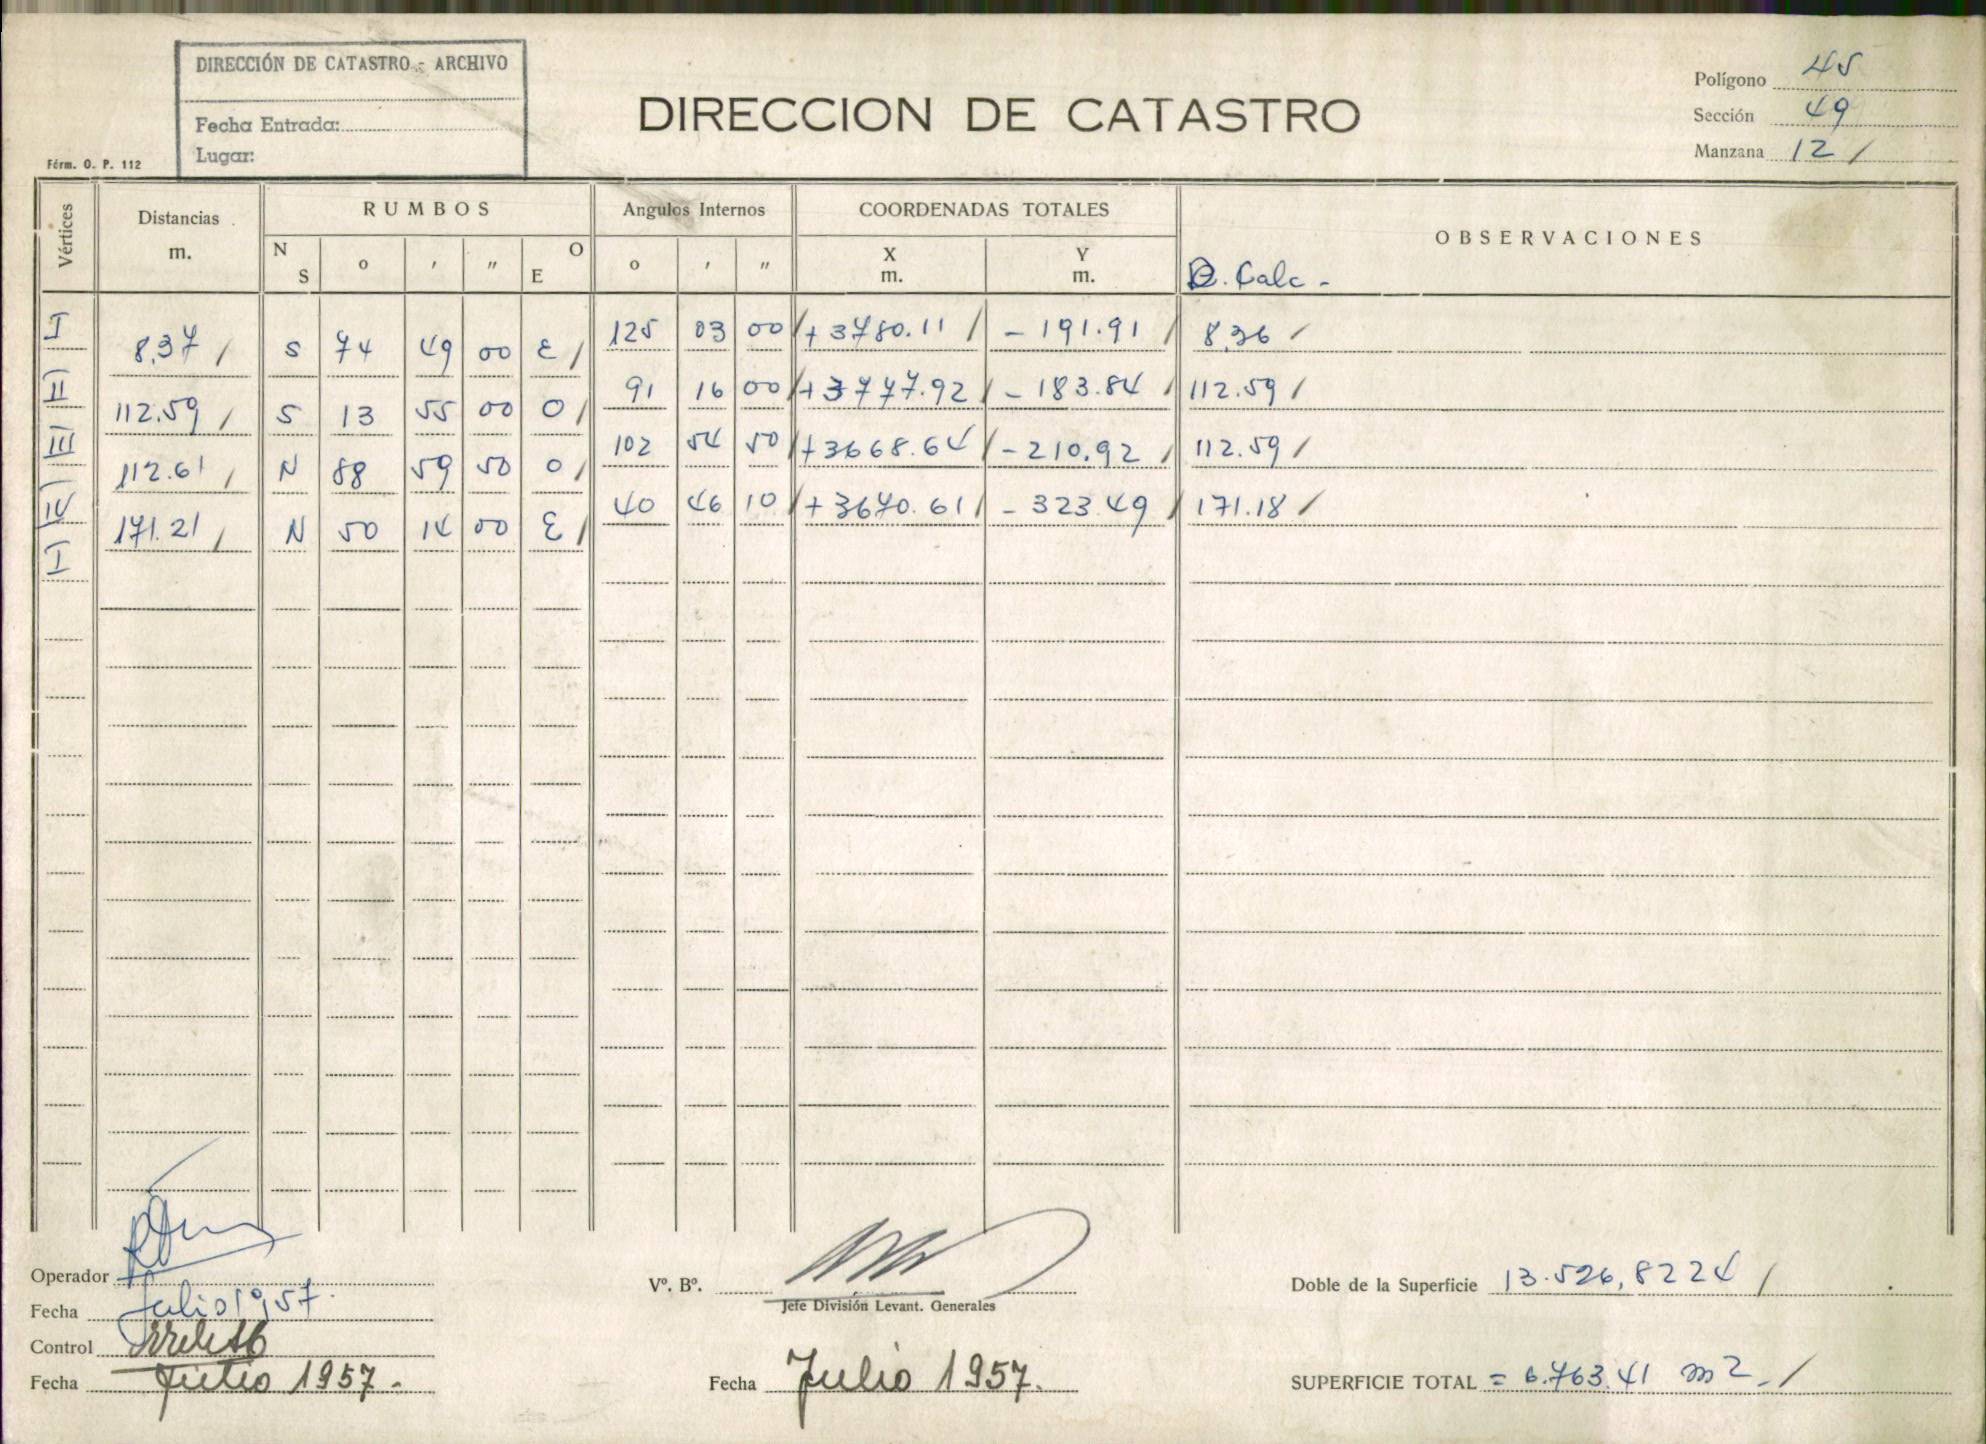 DIRECCIÓN DE CATASTRO - ARCHIVO
Fecha Entrada:
Lugar:
Fórm. O. P. 112
DIRECCION DE CATASTRO
Polígono 45
Sección 49
Manzana 12 /
Vértices Distancias m. RUMBOS N S o ' " O E Angulos Internos o ' " COORDENADAS TOTALES X m. Y m. OBSERVACIONES
D. Calc -
I 125 03 00 / + 3780.11 / - 191.91 / 8,36 /
8,37 / S 74 49 00 E /
II 91 16 00 / + 3777.92 / - 183.84 / 112.59 /
112.59 / S 13 55 00 O /
III 102 54 50 / + 3668.64 / - 210.92 / 112.59 /
112.61 / N 88 59 50 O /
IV 40 46 10 / + 3670.61 / - 323.49 / 171.18 /
171.21 / N 50 14 00 E /
I
Operador
Fecha Julio 1957.
Control
Fecha Julio 1957.-
Vº. Bº.
Jefe División Levant. Generales
Fecha Julio 1957.
Doble de la Superficie 13.526,8224 /
SUPERFICIE TOTAL = 6.763.41 m2.- /